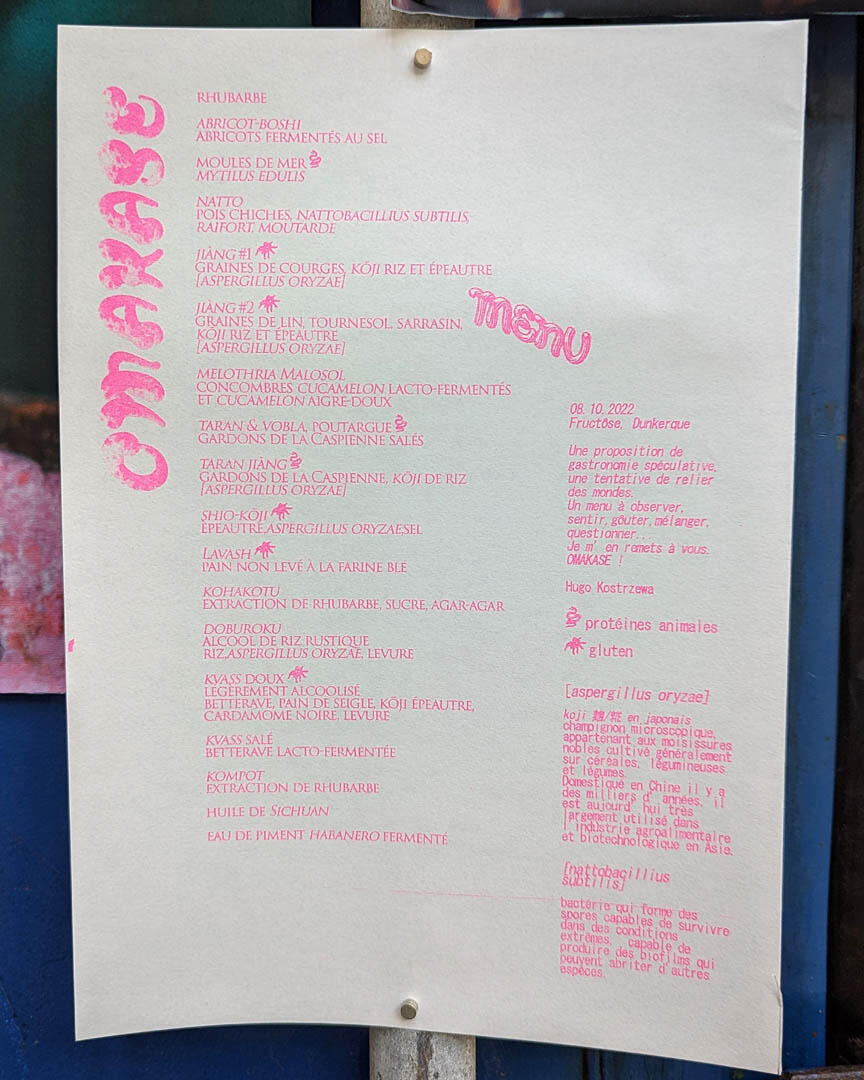 OMAKASE
RHUBARBE
ABRICOT-BOSHI
ABRICOTS FERMENTÉS AU SEL
MOULES DE MER
MYTILUS EDULIS
NATTO
POIS CHICHES, NATTOBACILLIUS SUBTILIS,
RAIFORT, MOUTARDE
JIÀNG #1
GRAINES DE COURGES, KŌJI RIZ ET ÉPEAUTRE
[ASPERGILLUS ORYZAE]
JIÀNG #2
GRAINES DE LIN, TOURNESOL, SARRASIN,
KŌJI RIZ ET ÉPEAUTRE
[ASPERGILLUS ORYZAE]
MELOTHRIA MALOSOL
CONCOMBRES CUCAMELON LACTO-FERMENTÉS
ET CUCAMELON AIGRE-DOUX
TARAN & VOBLA, POUTARGUE
GARDONS DE LA CASPIENNE SALÉS
TARAN JIÀNG
GARDONS DE LA CASPIENNE, KŌJI DE RIZ
[ASPERGILLUS ORYZAE]
SHIO-KŌJI
ÉPEAUTRE,ASPERGILLUS ORYZAE,SEL
LAVASH
PAIN NON LEVÉ À LA FARINE BLÉ
KOHAKOTU
EXTRACTION DE RHUBARBE, SUCRE, AGAR-AGAR
DOBUROKU
ALCOOL DE RIZ RUSTIQUE
RIZ,ASPERGILLUS ORYZAE, LEVURE
KVASS DOUX
LÉGÈREMENT ALCOOLISÉ
BETTERAVE, PAIN DE SEIGLE, KŌJI ÉPEAUTRE,
CARDAMOME NOIRE, LEVURE
KVASS SALÉ
BETTERAVE LACTO-FERMENTÉE
KOMPOT
EXTRACTION DE RHUBARBE
HUILE DE SICHUAN
EAU DE PIMENT HABANERO FERMENTÉ
MENU
08.10.2022
Fructôse, Dunkerque
Une proposition de
gastronomie spéculative,
une tentative de relier
des mondes.
Un menu à observer,
sentir, goûter, mélanger,
questionner...
Je m'en remets à vous.
OMAKASE !
Hugo Kostrzewa
protéines animales
gluten
[aspergillus oryzae]
koji 麹/糀 en japonais
champignon microscopique,
appartenant aux moisissures
nobles cultivé généralement
sur céréales, légumineuses
et légumes.
Domestiqué en Chine il y a
des milliers d'années, il
est aujourd'hui très
largement utilisé dans
l'industrie agroalimentaire
et biotechnologique en Asie.
[nattobacillius
subtilis]
bactérie qui forme des
spores capables de survivre
dans des conditions
extrêmes, capable de
produire des biofilms qui
peuvent abriter d'autres
espèces.